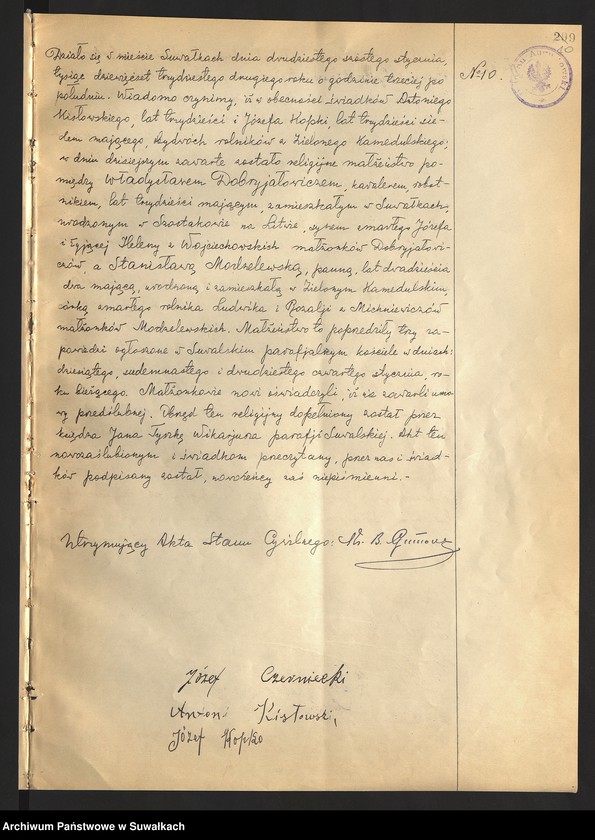 209
10
№ 10.
Działo się w mieście Suwałkach dnia dwudziestego szóstego stycznia,
tysiąc dziewięćset trzydziestego drugiego roku o godzinie trzeciej po
południu. Wiadomo czynimy, iż w obecności świadków Antoniego
Kisłowskiego, lat trzydzieści i Józefa Hopki, lat trzydzieści sie-
dem mającego, obydwóch rolników z Zielonego Kamedulskiego;
w dniu dzisiejszym zawarte zostało religijne małżeństwo po-
między Władysławem Dobryjałowiczem, kawalerem, robot-
nikiem, lat trzydzieści mającym, zamieszkałym w Suwałkach,
urodzonym w Szostakowie na Litwie, synem zmarłego Józefa
i żyjącej Heleny z Wojciechowskich małżonków Dobryjałowi-
czów, a Stanisławą Modzelewską, panną, lat dwadzieścia
dwa mającą, urodzoną i zamieszkałą w Zielonym Kamedulskim
córką zmarłego rolnika Ludwika i Rozalji z Michniewiczów
małżonków Modzelewskich. Małżeństwo to poprzedziły trzy za-
powiedzi ogłoszone w Suwalskim parafjalnym kościele w dniach:
dziesiątego, siedemnastego i dwudziestego czwartego stycznia, ro-
ku bieżącego. Małżonkowie nowi oświadczyli, iż nie zawarli umo-
wy przedślubnej. Obrzęd ten religijny dopełniony został przez
księdza Jana Tyszkę Wikarjusza parafji Suwalskiej. Akt ten
nowozaślubionym i świadkom przeczytany, przez nas i świad-
ków podpisany został, nowożeńcy zaś niepiśmienni.-
Utrzymujący Akta Stanu Cywilnego: B.
Józef Czerniecki
Antoni Kisłowski,
Józef Hopko
Archiwum Państwowe w Suwałkach